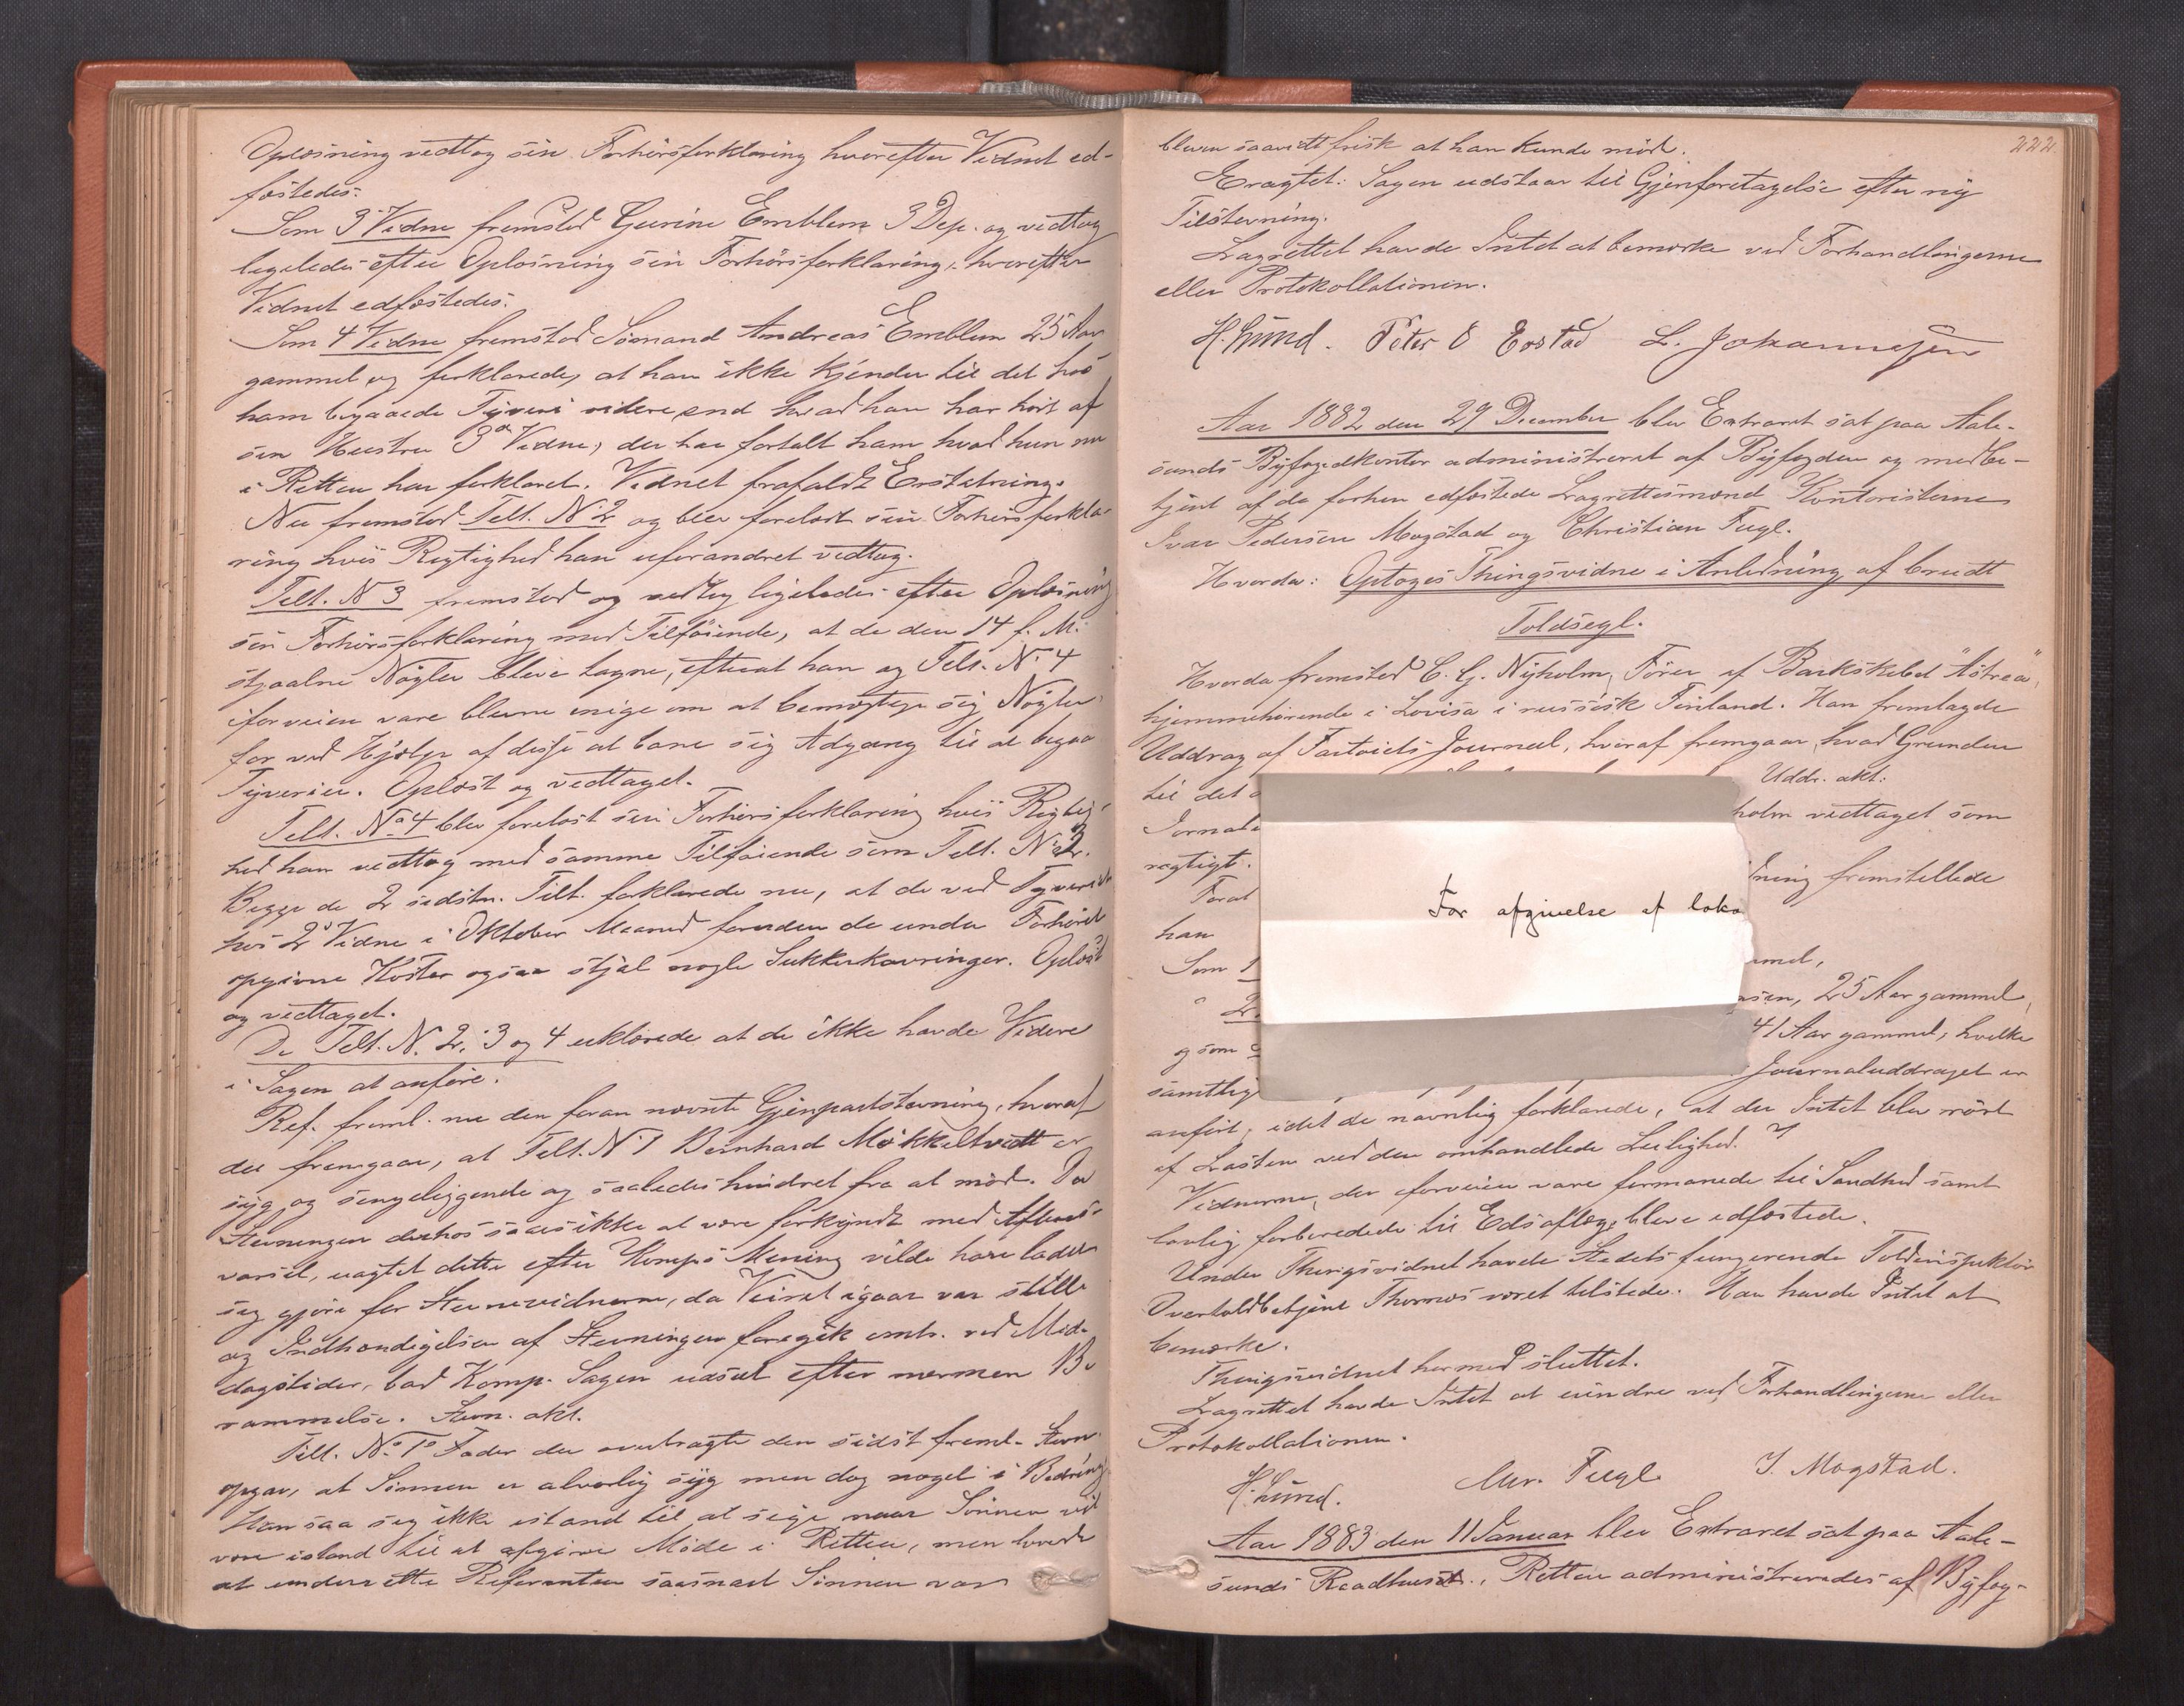 Oplæsning vedtog sin Forhørsforklaring hvorefter Vidnet ed-
fæstedes.
Som 3die Vidne fremstod Gurine Emblem 3 Dep. og vedtog
ligeledes efter Oplæsning sin Forhørsforklaring, hvorefter
Vidnet edfæstedes.
Som 4 Vidne fremstod Sømand Andreas Emblem 25 Aar
gammel og forklarede, at han ikke kjender til det hos
ham begaaede Tyveri videre end hvad han har hørt af
sin Hustru 3die Vidne, der har fortalt ham hvad hun nu
i Retten har forklaret. Vidnet frafaldt Erstatning.
Nu fremstod Telt. No 2 og blev forelæst sin Forhørsforkla-
ring hvis Rigtighed han uforandret vedtog.
Telt. N 3 fremstod og vedtog ligeledes efter Oplæsning
sin Forhørsforklaring med Tilføiende, at de den 14 f. M.
stjaalne Nøgler bleve tagne, efterat han og Telt. No 4
iforveien vare blevne enige om at bemægtige sig Nøgler
for ved Hjælp af disse at bane sig Adgang til at begaa
Tyverier. Oplæst og vedtaget.
Telt. No 4 blev forelæst sin Forhørsforklaring hvis Rigtig-
hed han vedtog med samme Tilføiende som Telt. No 3.
Begge de 2 sidstn. Tilt. forklarede nu, at de ved Tyveriet
hos 2det Vidne i Oktober Maaned foruden de under Forhøret
opgivne Koster ogsaa stjal nogle Sukkerkavringer. Oplæst
og vedtaget.
De Telt. N. 2, 3 og 4 erklærede at de ikke havde Videre
i Sagen at anføre.
Ref. freml. nu den foran nævnte Gjenpartstævning, hvoraf
det fremgaar, at Telt. N 1 Bernhard Møkkeltvedt er
syg og sengeliggende og saaledes hindret fra at møde. Da
Stevningen derhos saaes ikke at være forkyndt med Aftens-
varsel, uagtet dette efter Komp's Mening vilde have ladet
sig gjøre for Stevnevidnerne, da Veiret igaar var stille
og Indhændigelsen af Stevningen foregik omtr. ved Mid-
dagstider, bad Komp. Sagen udsat efter nærmere Be-
rammelse. Stevn. akt.
Tilt. No 1s Fader der overbragte den sidst freml. Stevn.
opgav, at Sønnen er alvorlig syg men dog noget i Bedring
Han saa sig ikke istand til at sige naar Sønnen vil
være istand til at afgive Møde i Retten, men lovede
at underrette Referenten saasnart Sønnen var
222
bleven saavidt frisk at han kunde møde.
Eragtet: Sagen udstaar til Gjenforetagelse efter ny
Tilstevning.
Lagrettet havde Intet at bemærke ved Forhandlingerne
eller Protokollationen.
H. Lund. Peter O Erstad L. Johannesen
Aar 1882 den 29 December blev Extraret sat paa Aale-
sunds Byfogedkontor administreret af Byfogden og medbe-
tjent af de forhen edfæstede Lagrettesmænd Kontoristerne
Ivar Pedersen Mogstad og Christian Fugl.
Hvorda: Optoges Thingsvidne i Anledning af brudt
Toldsegl.
Hvorda fremstod C. G. Nyholm, Fører af Barkskibet "Astrea",
hjemmehørende i Lovisa i russisk Finland. Han fremlagde
Uddrag af Fartøiets Journal, hvoraf fremgaar, hvad Grunden
til det Uddr. akt.
Jornale holm vedtaget som
rigtigt.
Forat dning fremstillede
han
Som 1 mmel,
" 2 nsen, 25 Aar gammel,
og som 41 Aar gammel, hvilke
samtlige Journaluddraget er
anført, idet de navnlig forklarede, at der Intet blev rørt
af Lasten ved den omhandlede Leilighed.
Vidnerne, der iforveien vare formanede til Sandhed samt
lovlig forberedede til Edsaflæg, bleve edfæstede.
Under Thingsvidnet havde Stedets fungerende Toldinspektør
Overtoldbetjent Thormos været tilstede. Han havde Intet at
bemærke.
Thingsvidnet hermed sluttet.
Lagrettet havde Intet at erindre ved Forhandlingerne eller
Protokollationen.
H. Lund. Chr. Fugl. I. Mogstad.
Aar 1883 den 11 Januar blev Extraret sat paa Aale-
sunds Raadhus. Retten administreredes af Byfog-
For afgivelse af loka